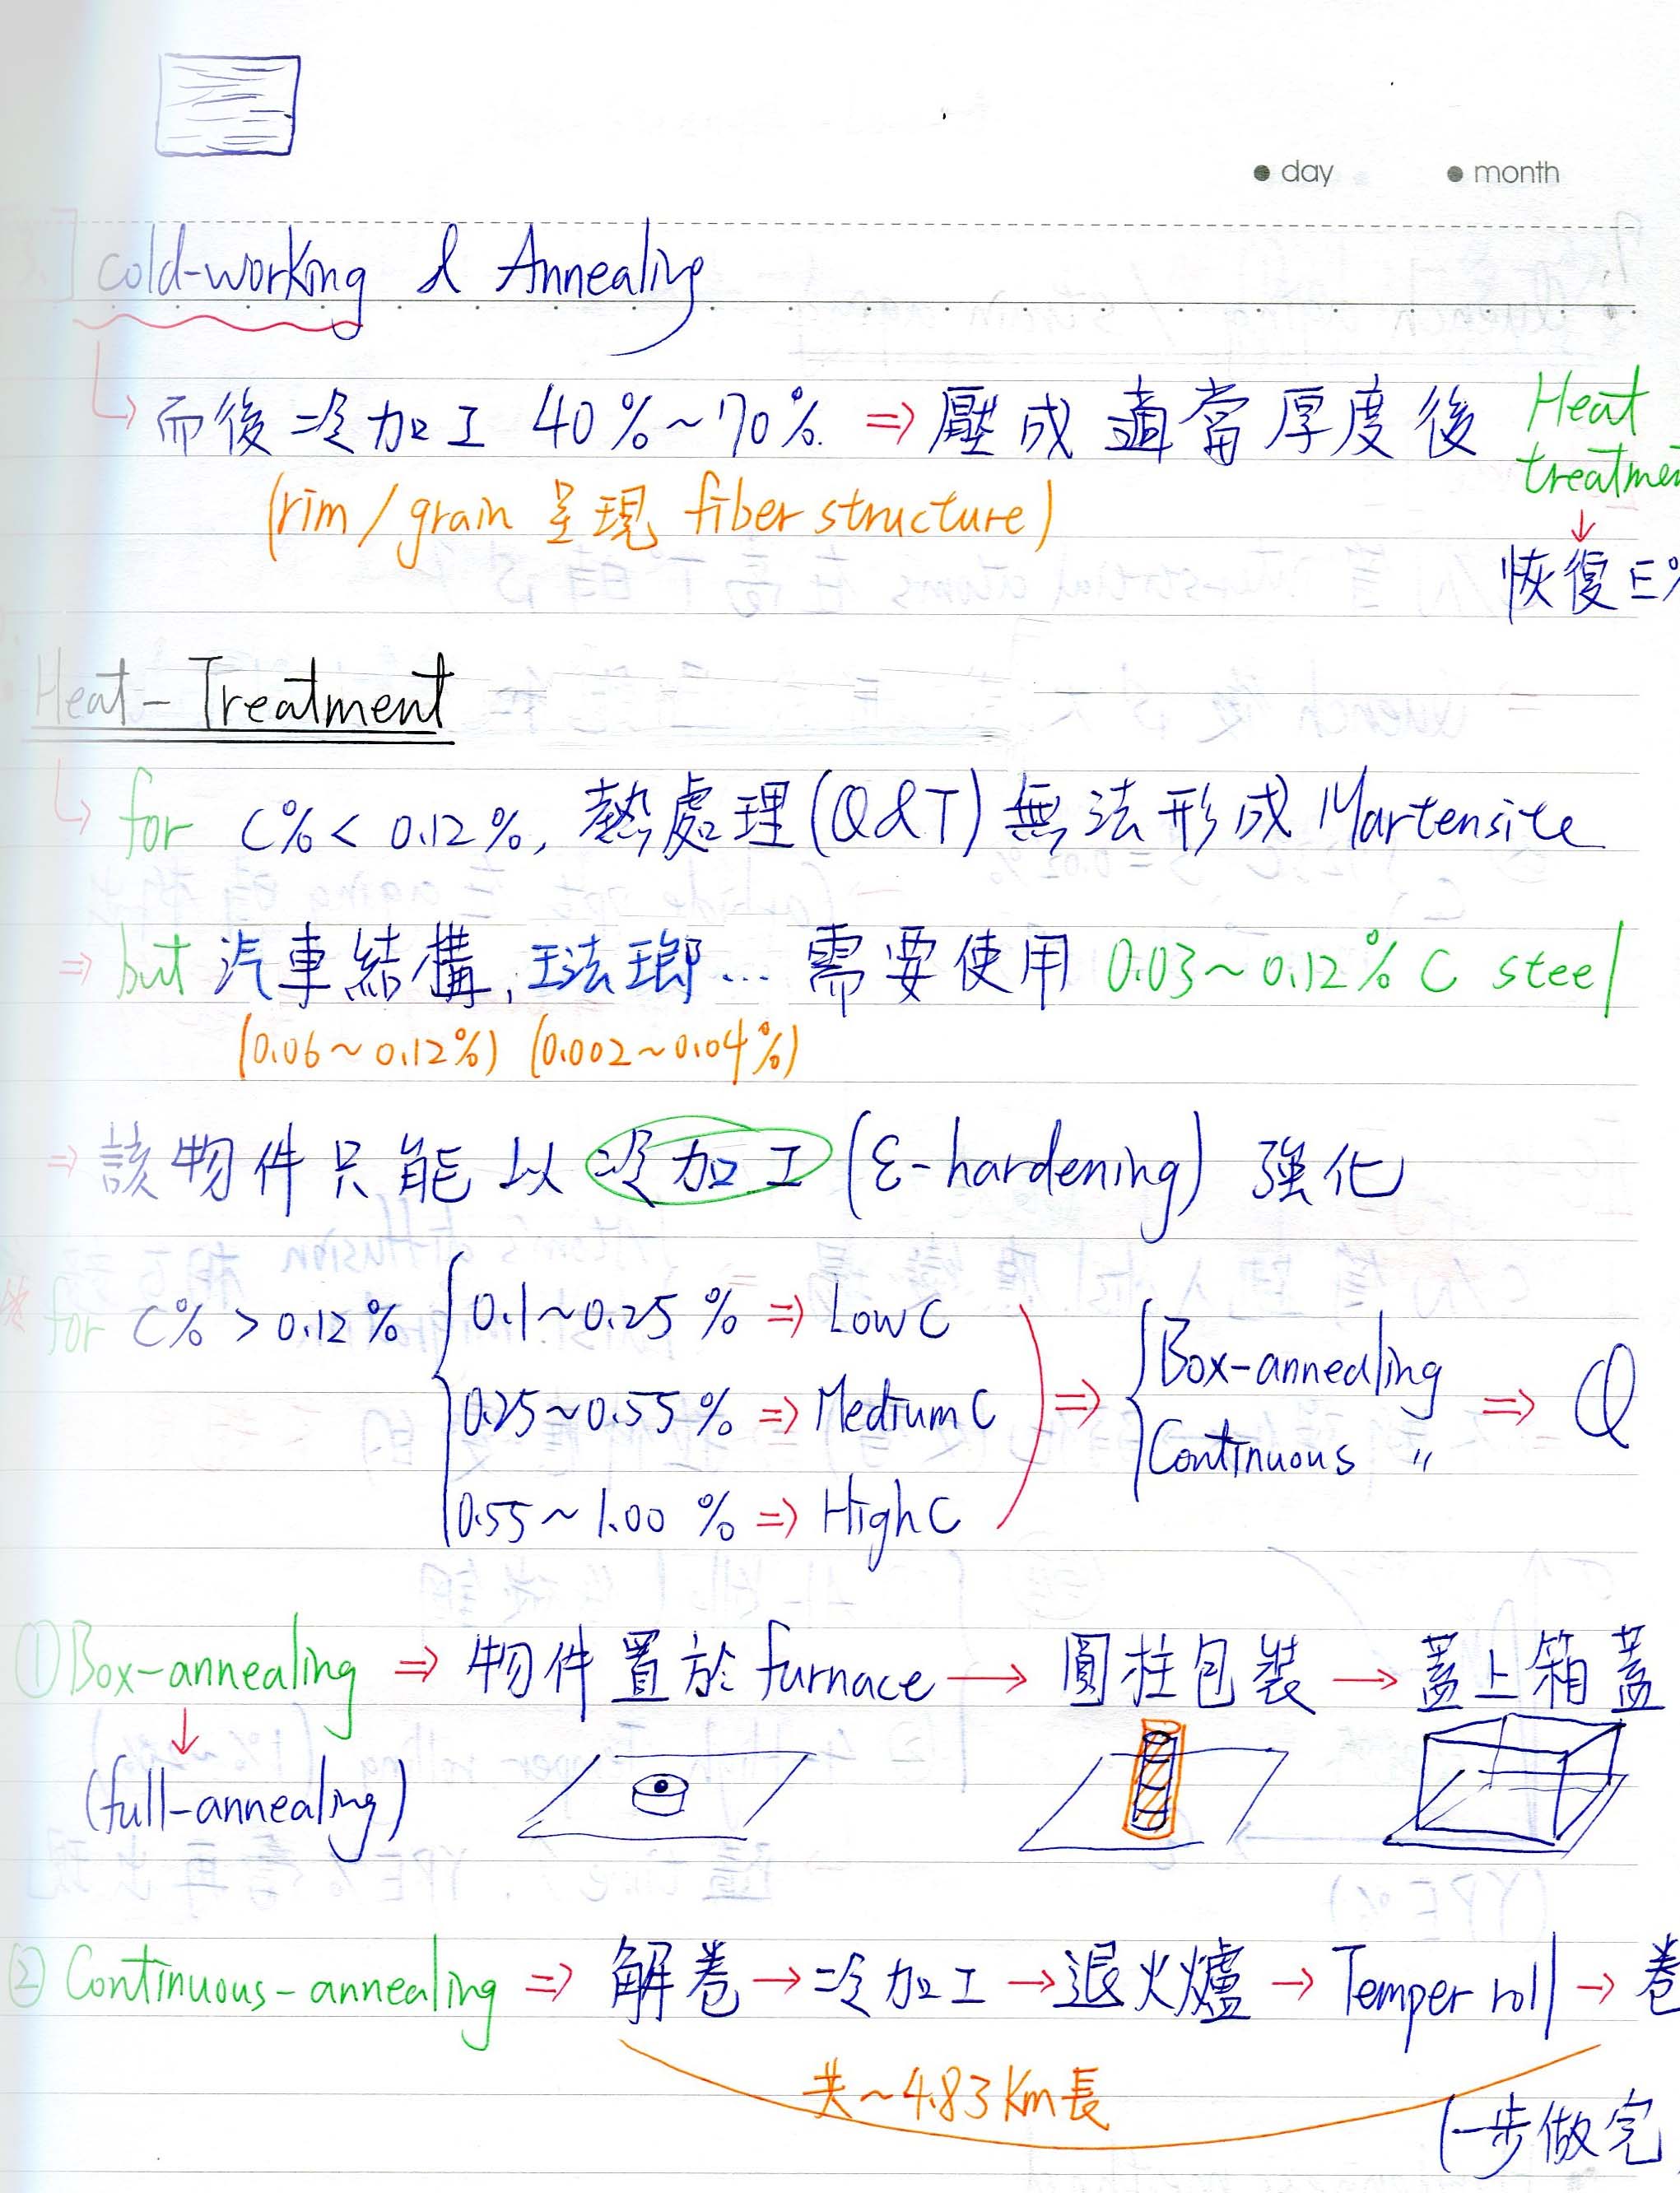 • day • month
cold-working & Annealing
↳ 而後冷加工 40%~70% ⇒ 壓成適當厚度後 Heat
treatmen
(rim/grain 呈現 fiber structure)
↓
恢復 E%
Heat-Treatment
↳ for C% < 0.12%, 熱處理(Q&T)無法形成 Martensite
⇒ but 汽車結構, 琺瑯… 需要使用 0.03~0.12% C steel
(0.06~0.12%) (0.002~0.04%)
⇒ 該物件只能以冷加工(ε-hardening) 強化
for C% > 0.12% { 0.1~0.25% ⇒ Low C
0.25~0.55% ⇒ Medium C
0.55~1.00% ⇒ High C
⇒ { Box-annealing
Continuous 〃
⇒ Q
① Box-annealing ⇒ 物件置於 furnace → 圓柱包裝 → 蓋上箱蓋
↓
(full-annealing)
② Continuous-annealing ⇒ 解卷 → 冷加工 → 退火爐 → Temper roll → 卷
共~4.83 Km長
(一步做完